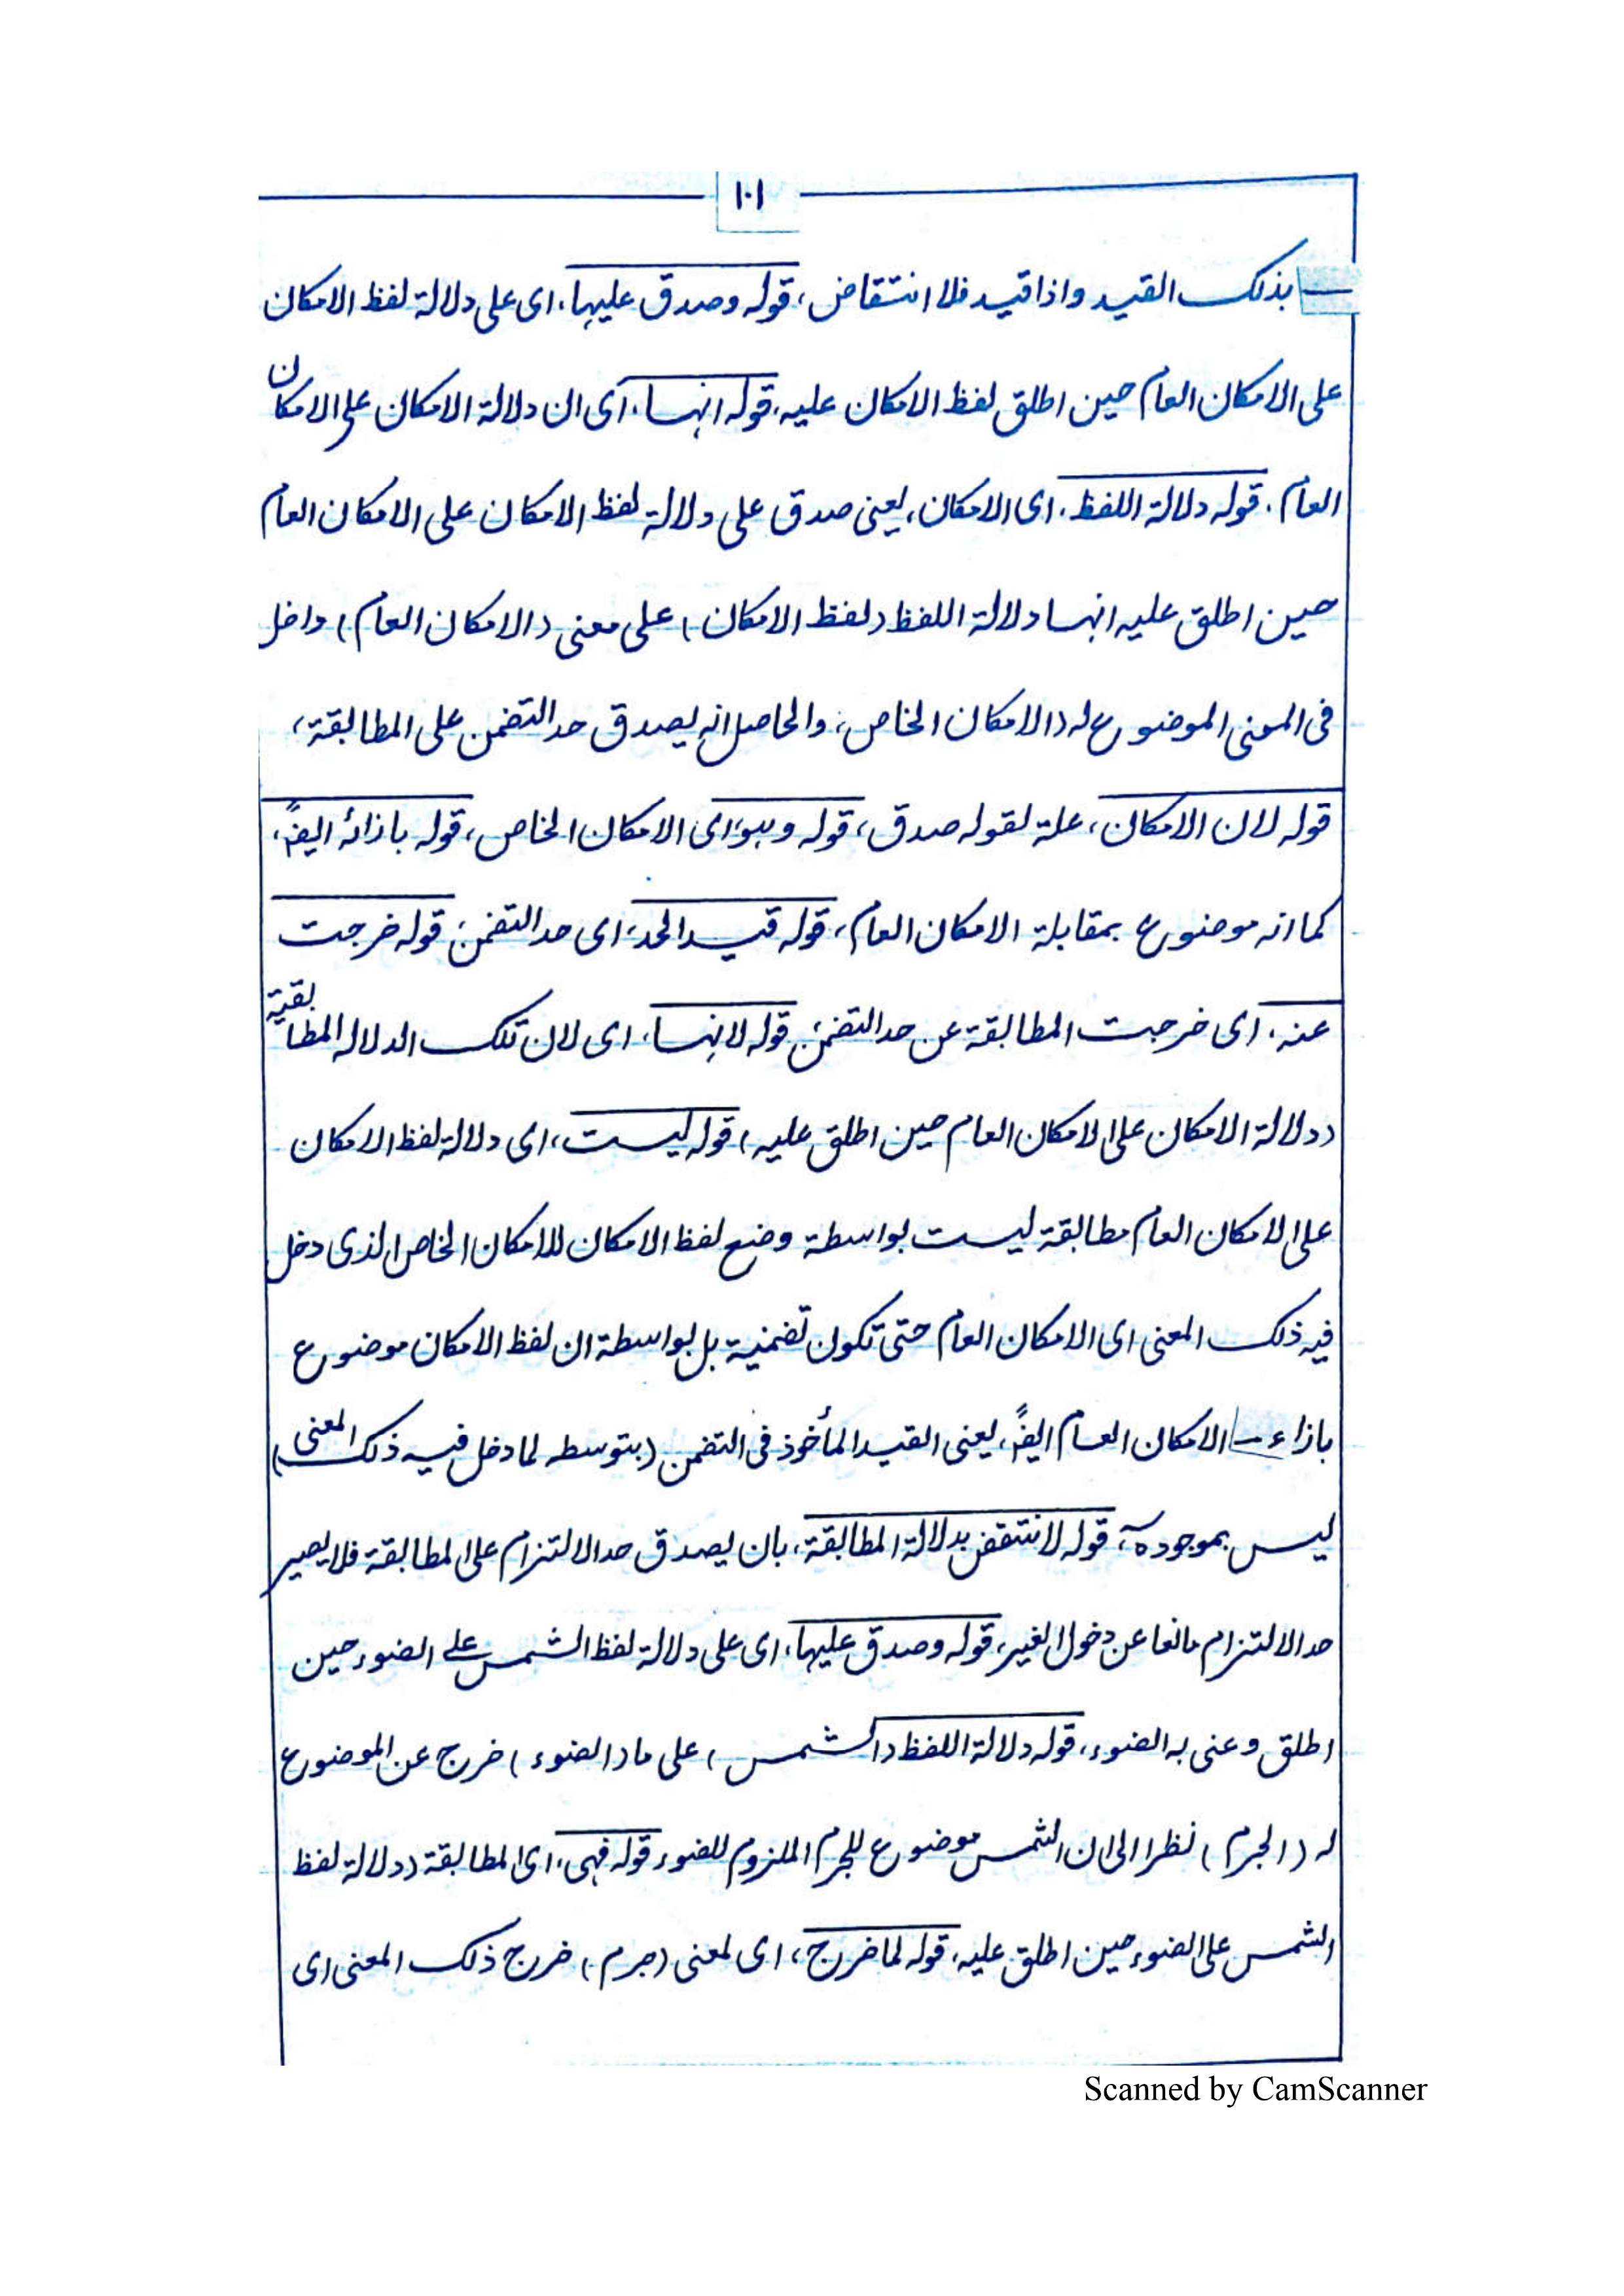 ١٠١
بذلک القید واذا قید فلا انتقاض، قوله وصدق علیها، ای علی دلالة لفظ الامکان
علی الامکان العام حین اطلق لفظ الامکان علیه، قوله انها، ای ان دلالة الامکان علی الامکان
العام. قوله دلالة اللفظ، ای الامکان، یعنی صدق علی دلالة لفظ الامکان علی الامکان العام
حین اطلق علیه انها دلالة اللفظ (لفظ الامکان) علی معنی (الامکان العام) داخل
فی المعنی الموضوع له (الامکان الخاص، والحاصل انه یصدق حد التضمن علی المطابقة،
قوله لان الامکان، علة لقوله صدق، قوله وهو، ای الامکان الخاص، قوله بازائه ایضً،
کما انه موضوع بمقابلة الامکان العام، قوله قید الحد، ای حد التضمن، قوله خرجت
عنه، ای خرجت المطابقة عن حد التضمن، قوله لانها، ای لان تلک الدلاله المطابقیة
(دلالة الامکان علی الامکان العام حین اطلق علیه) قوله لیست، ای دلالة لفظ الامکان
علی الامکان العام مطابقة لیست بواسطة وضع لفظ الامکان للامکان الخاص الذی دخل
فیه ذلک المعنی ای الامکان العام حتی تکون تضمنیة بل بواسطة ان لفظ الامکان موضوع
بازاء الامکان العام ایضً، یعنی القید المأخوذ فی التضمن (بتوسطه لما دخل فیه ذلک المعنی)
لیس بموجود، قوله لانتقض بدلالة المطابقة، بان یصدق حد الالتزام علی المطابقة فلا یصیر
حد الالتزام مانعا عن دخول الغیر، قوله وصدق علیها، ای علی دلالة لفظ الشمس علی الضوء حین
اطلق وعنی به الضوء، قوله دلالة اللفظ (الشمس) علی ما (الضوء) خرج عن الموضوع
له (الجرم) نظرا الی ان الشمس موضوع للجرم الملزوم للضوء قوله فهی، ای المطابقة (دلالة لفظ
الشمس علی الضوء حین اطلق علیه، قوله لما خرج، ای لمعنی (جرم) خرج ذلک المعنی ای
Scanned by CamScanner